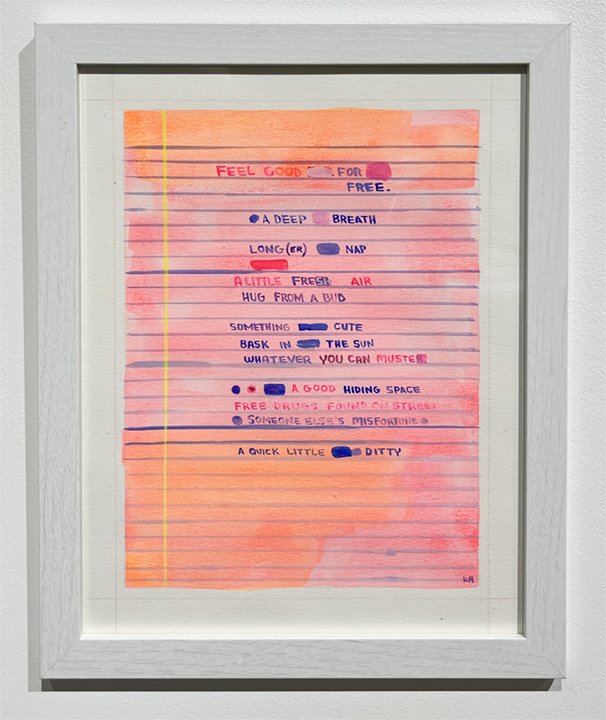 FEEL GOOD FOR
FREE.
A DEEP BREATH
LONG(ER) NAP
A LITTLE FRESH AIR
HUG FROM A BUD
SOMETHING CUTE
BASK IN THE SUN
WHATEVER YOU CAN MUSTER
A GOOD HIDING SPACE
FREE DRUGS FOUND ON STREET
SOMEONE ELSE'S MISFORTUNE
A QUICK LITTLE DITTY
KH